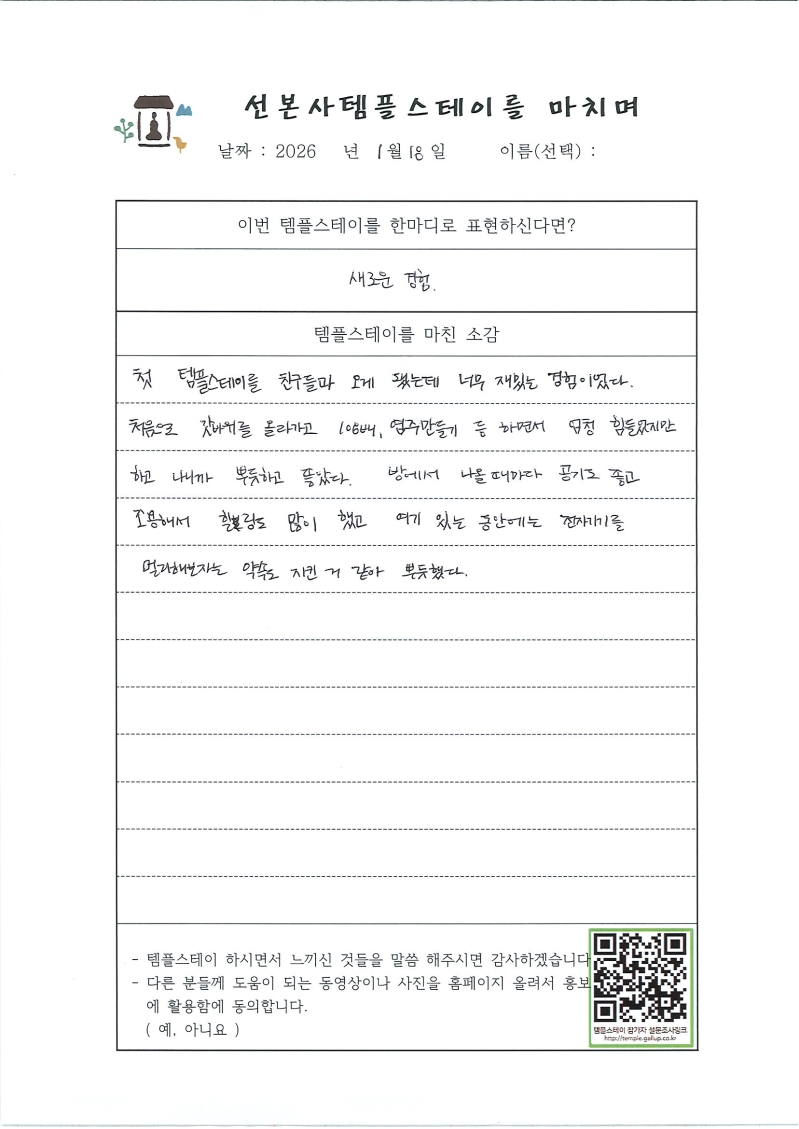 선본사템플스테이를 마치며
날짜 : 2026 년 1월 18일 이름(선택) :
이번 템플스테이를 한마디로 표현하신다면?
새로운 경험.
템플스테이를 마친 소감
첫 템플스테이를 친구들과 오게 됐는데 너무 재밌는 경험이었다.
처음으로 갓바위를 올라가고 108배, 염주만들기 등 하면서 엄청 힘들었지만
하고 나니까 뿌듯하고 좋았다. 방에서 나올 때마다 공기도 좋고
조용해서 힐링도 많이 했고 여기 있는 동안에는 전자기기를
멀리해보자는 약속도 지킨 거 같아 뿌듯했다.
- 템플스테이 하시면서 느끼신 것들을 말씀 해주시면 감사하겠습니다
- 다른 분들께 도움이 되는 동영상이나 사진을 홈페이지 올려서 홍보
에 활용함에 동의합니다.
( 예, 아니요 )
템플스테이 참가자 설문조사링크
http://temple.gallup.co.kr